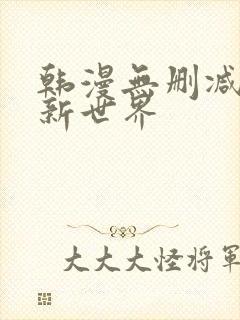 韩漫無删减
新世界
大大大怪将軍